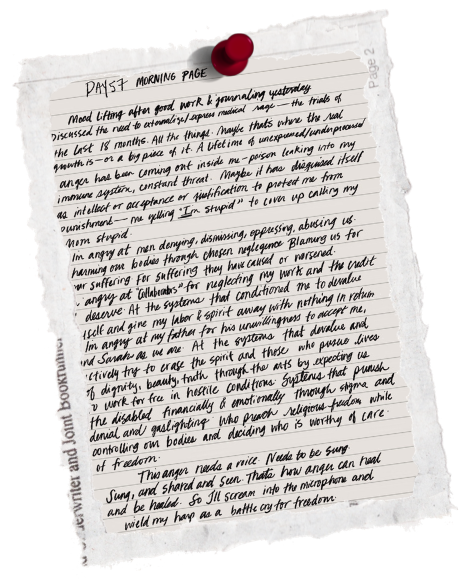 Page 2
DAY 57 MORNING PAGE
Mood lifting after good work & journaling yesterday
Discussed the need to externalize/express medical rage — the trials of
the last 18 months. All the things. Maybe thats where the real
growth is — or a big piece of it. A lifetime of unexpressed/underprocessed
anger has been coming out inside me — poison leaking into my
immune system, constant threat. Maybe it how disguised itself
as intellect or acceptance or justification to protect me from
punishment — me yelling "Im Stupid" to cover up calling my
mom stupid.
Im angry at men denying, dismissing, oppressing, abusing us.
harming our bodies through chosen negligence Blaming us for
our suffering For suffering they have caused or worsened.
angry at "Collaborators" for neglecting my work and the credit
deserve. At the systems that conditioned me to devalue
itself and give my labor & spirit away with nothing in return
Im angry at my father for his unwillingness to accept me,
and Sarah as we are. At the systems that devalue and
ctively try to erase the spirit and those who pursue lives
of dignity, beauty, truth through the arts by expecting us
to work for free in hostile conditions. Systems that punish
the disabled financially & emotionally through stigma and
denial and gaslighting. Who preach religious freedom while
controlling our bodies and deciding who is worthy of care.
of freedom.
This anger needs a voice. Needs to be sung
Sung, and shared and seen. Thats how anger can heal
and be healed. So I'll scream into the microphone and
wield my harp as a battle cry for freedom
erwriter and Joint bookrunner